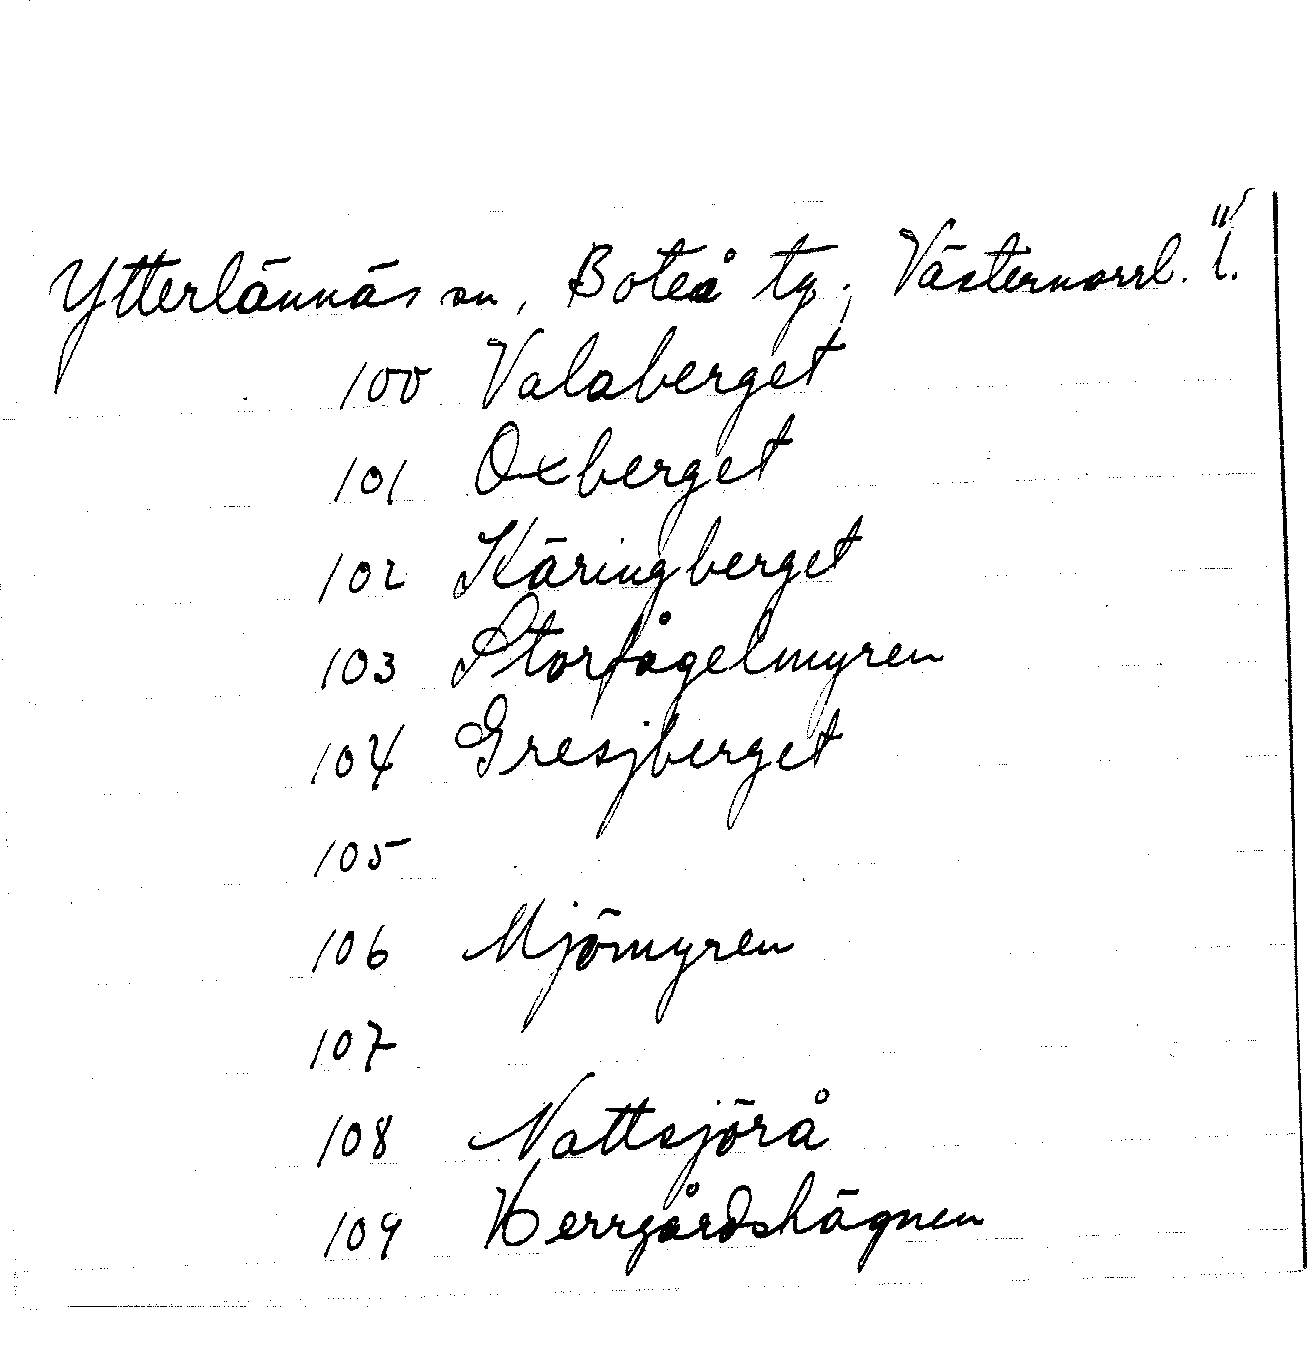 Ytterlännäs sn, Boteå tg, Västernorrl. l.
100 Valaberget
101 Oxberget
102 Käringberget
103 Storfågelmyren
104 Gresjberget
105
106 Mjömyren
107
108 Nattsjörå
109 Herrgårdshägnen